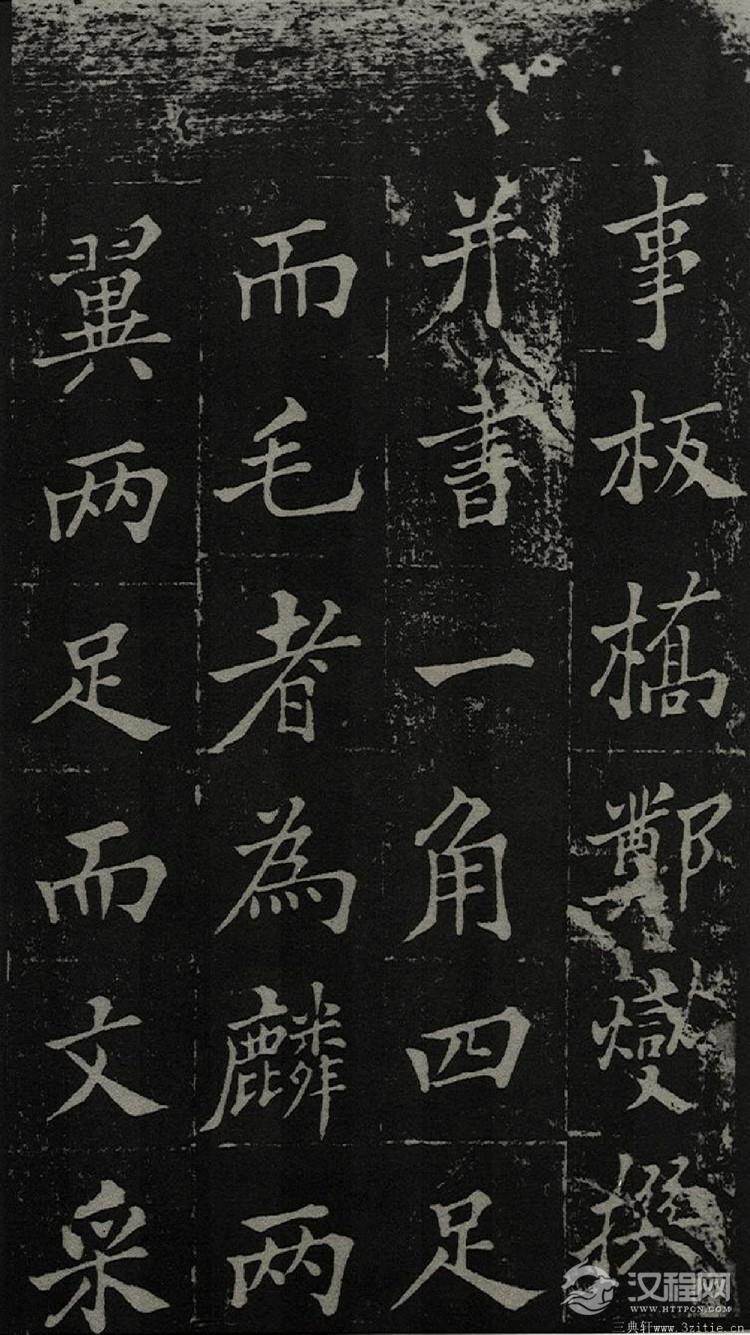 事板橋鄭燮撰
并書一角四足
而毛者為麟两
翼两足而文采
汉程网
WWW.HTTPCN.COM
三典轩www.3zitie.cn